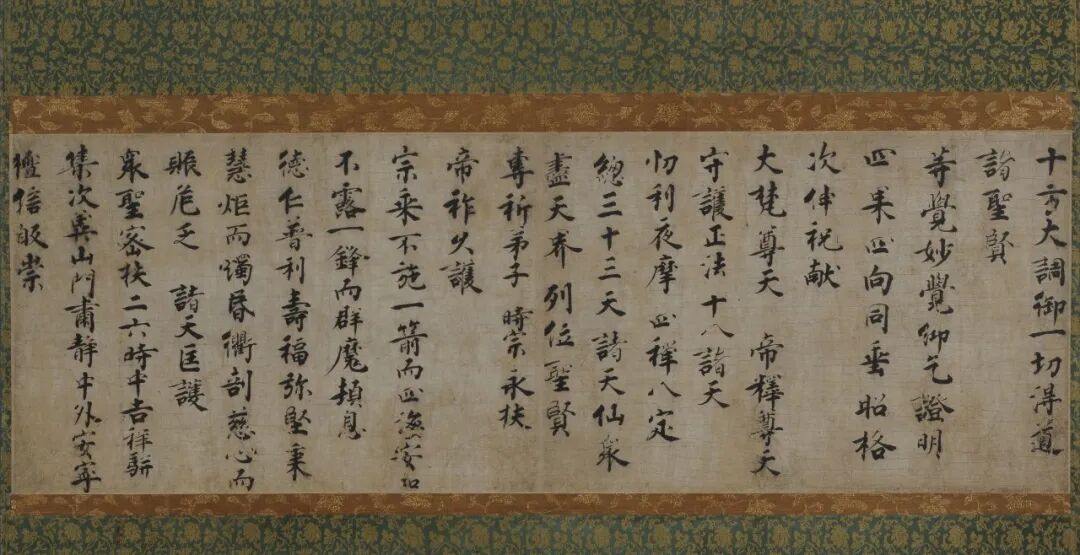 十方大調御一切得道
諸聖賢
等覺妙覺仰乞證明
四果四向同垂昭格
次伸祝献
大梵尊天 帝釋尊天
守護正法十八諸天
忉利夜摩四禪八定
總三十三天諸天仙衆
盡天界列位聖賢
專祈弟子 時宗永扶
帝祚久護
宗乘不施一箭而四海安和
不露一鋒而群魔頓息
德仁普利壽福弥堅秉
慧炬而燭昏衢剖慈心而
賑危乏 諸天匡護
衆聖密扶二六時中吉祥駢
集次冀山門肅静中外安寧
檀信皈崇